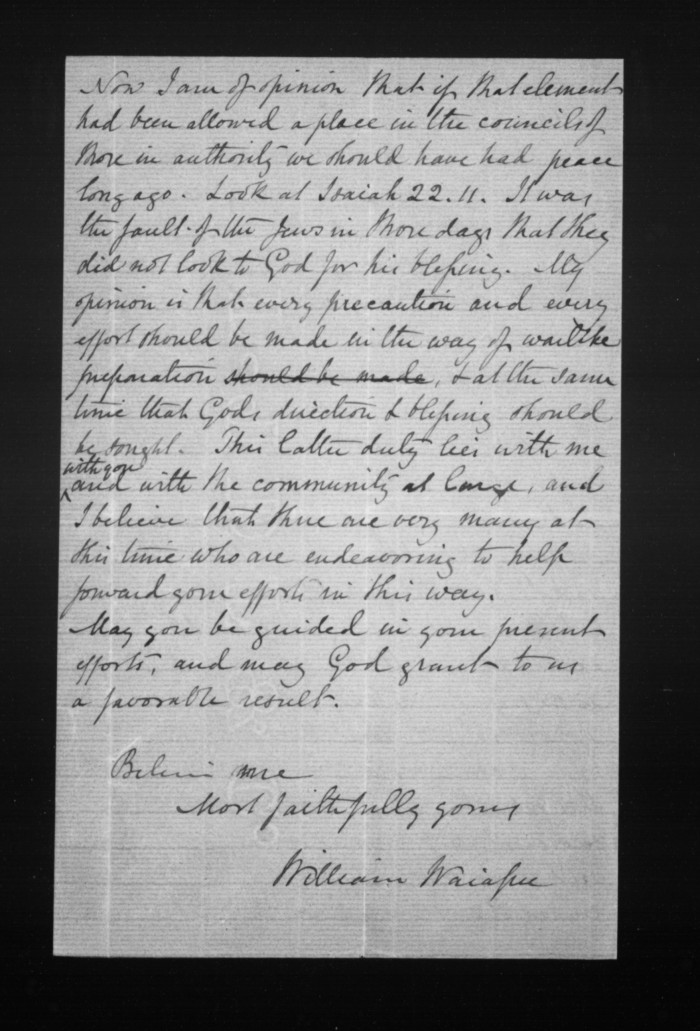 Now I am of opinion that if that element
had been allowed a place in the councils of
those in authority we should have had peace
long ago. Look at Isaiah 22.11. It was
the fault of the Jews in those days that they
did not look to God for his blessing. My
opinion is that every precaution and every
effort should be made in the way of warlike
preparation should be made, & at the same
time that Gods direction & blessing should
be sought. This latter duty lies with me
with you
and with the community at large, and
I believe that there are very many at
this time who are endeavoring to help
forward your efforts in this way.
May you be guided in your present
efforts, and may God grant to us
a favorable result.
Believe me
Most faithfully yours
William Waiapu